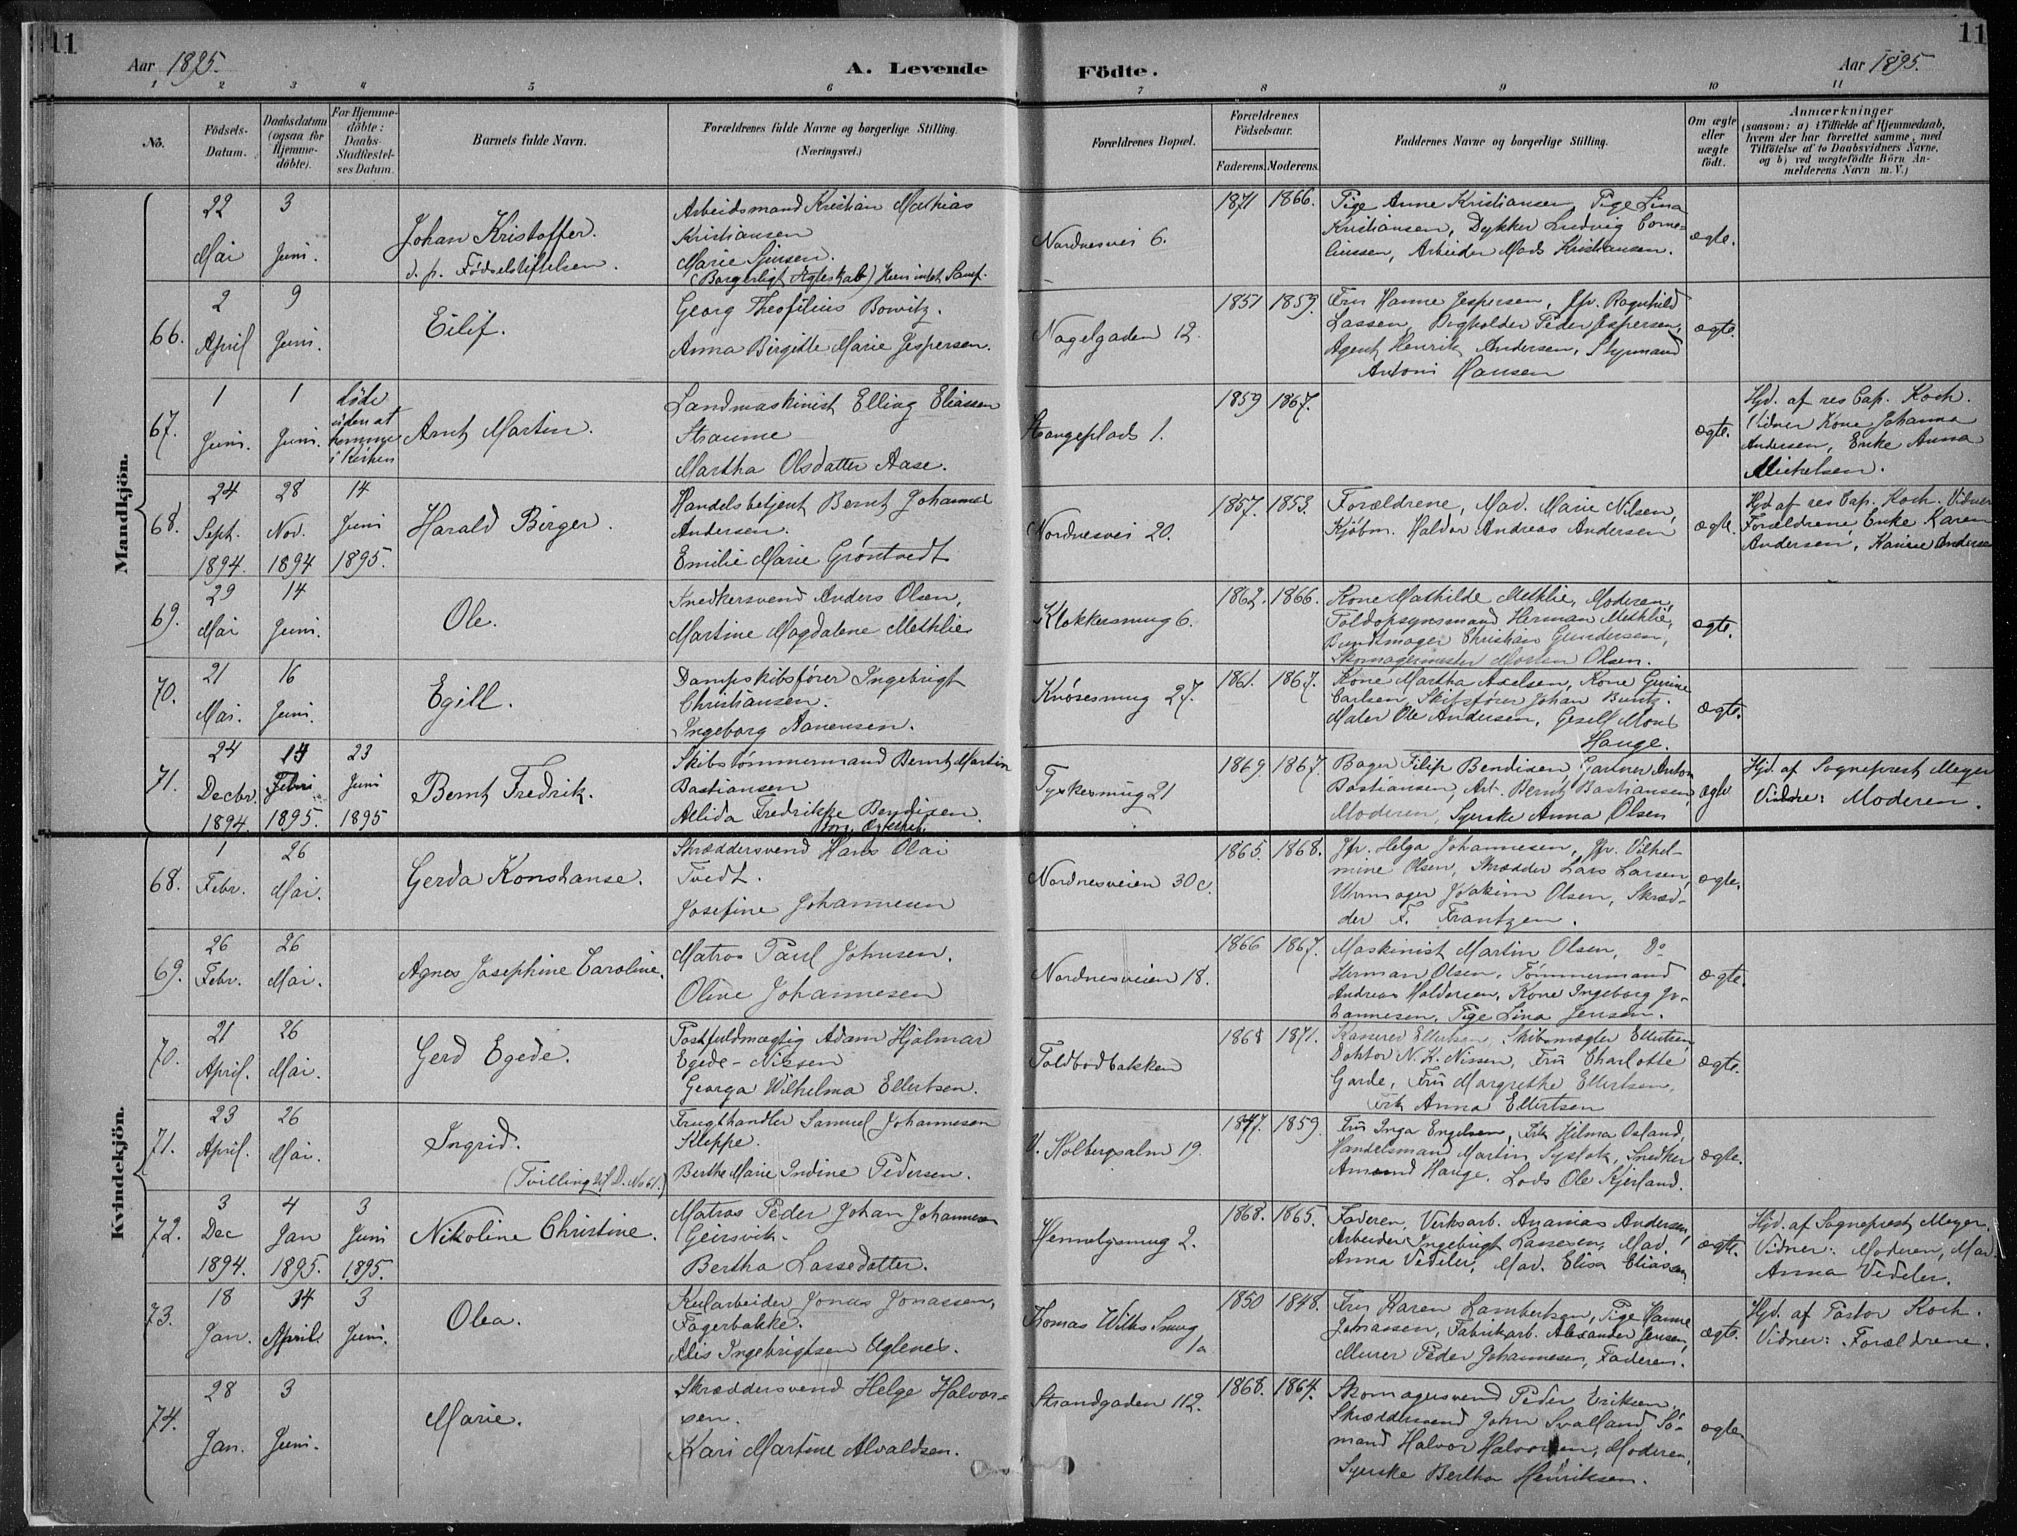 11
11
Aar 1895.
A. Levende
Födte.
Aar 1895.
1 2 3 4 5 6 7 8 9 10 11
Nô.
Födsels-
Datum.
Daabsdatum
(ogsaa for
Hjemme-
döbte).
For Hjemme-
döbte:
Daabs-
Stadfæstel-
ses Datum.
Barnets fulde Navn.
Forældrenes fulde Navne og borgerlige Stilling.
(Næringsvei.)
Forældrenes Bopæl.
Forældrenes
Födselsaar.
Faderens.
Moderens.
Faddernes Navne og borgerlige Stilling.
Om ægte
eller
uægte
födt.
Anmærkninger
(saasom: a) i Tilfælde af Hjemmedaab,
hvem der har forrettet samme, med
Tilföielse af to Daabsvidners Navne,
og b) ved uægtefödte Börn An-
melderens Navn m. V.)
Mandkjön.
22
Mai
3
Juni.
Johan Kristoffer.
d. p. Fødselstiftelsen.
Arbeidsmand Kristian Mathias
Kristiansen
Marie
(Borgerligt Ægteskab) Hun intet Samf.
Nordnesvei 6.
1871
1866.
Pige Anne Kristiansen, Pige Lina
Kristiansen, Dykker Ludvig Corne-
liussen, Arbeider Mads Kristiansen.
ægte.
66.
2
April
9
Juni.
Eilif.
Georg Theofilius Bowitz.
Anna Birgitte Marie Jespersen.
Nagelgaden 12.
1851
1859.
Fru Hanne Jespersen, Jfr. Ragnhild
Lassen, Bogholder Peder Jespersen,
Agent Henrik Andersen, Styrmand
Antoni Hansen
ægte.
67.
1
Juni.
1
Juni.
døde
uden at
komme
i Kirken
Arnt Martin.
Landmaskinist Elling Eliassen
Straume
Martha Olsdatter Aase.
Stangeplads 1.
1859
1867.
ægte.
Hjd. af res Cap. Koch.
Vidner Kone Johanna
Andersen, Enke Anna
Michelsen.
68.
24
Sept.
1894.
28
Nov.
1894
14
Juni
1895.
Harald Birger.
Handelsbetjent Bernt Johannes
Andersen.
Emilie Marie Grøntvedt
Nordnesvei 20.
1857.
1853.
Forældrene, Mad. Marie Nilsen,
Kjøbm. Haldor Andreas Andersen
ægte.
Hjd af res Cap. Koch. Vidner
Forældrene, Enke Karen
Andersen,
69.
29
Mai
14
Juni.
Ole.
Snedkersvend Anders Olsen,
Martine Magdalene Methlie
Klokkersmug 6.
1862.
1866.
Kone Mathilde Methlie, Moderen,
Toldopsynsmand Herman Methlie,
Bundtmager Christian Gundersen,
Skomagermester Morten Olsen.
ægte.
70.
21
Mai.
16
Juni.
Egill.
Dampskibsfører Ingebrigt
Christiansen.
Ingeborg Aanensen.
Knøsesmug 27.
1861.
1867.
Kone Martha Axelsen, Kone Gurine
Carlsen, Skibsfører Johan Buntz.
Maler Ole Andersen, Gesell Mons
Hauge.
ægte.
71.
24
Decbr.
1894.
Febr.
1895.
23
Juni
1895
Bernt Fredrik.
Skibstømmermand Bernt Martin
Bastiansen
Allida Fredrikke Bendixen.
Borg. Ægteskab.
Tyskesmug 21
1869
1867.
Bager Filip Bendixen, Gartner Anton
Bastiansen, Arb. Bernt Bastiansen,
Moderen, Syerske Anna Olsen
ægte
Hjd. af Sogneprest Meyer
Vidne: Moderen.
Kvindekjön.
68.
1
Febr.
26
Mai.
Gerda Konstanse.
Skræddersvend Hans Olai
Tvedt.
Josefine Johannesen
Nordnesveien 30c.
1865.
1868.
Jfr. Helga Johannesen, Jfr. Vilhel-
mine Olsen, Skrædder Lars Larsen,
Uhrmager Joakim Olsen, Skræd-
der F. Frantzen.
ægte.
69.
26
Febr.
26
Mai.
Agnes Josephine Caroline.
Matros Paul Johnsen.
Oline Johannesen
Nordnesveien 18.
1866
1867.
Maskinist Martin Olsen, Do
Herman Olsen, Tømmermand
Andreas Haldorsen, Kone Ingeborg Jo-
hannesen, Pige Lina Jensen.
ægte.
70.
21
April.
26
Mai.
Gerd Egede.
Postfuldmægtig Adam Hjalmar
Egede-Nissen
Georga Wilhelma Ellertsen.
Toldbodbakken
1868
1871.
Kasserer Ellertsen, Skibsmægler Ellertsen,
Doktor N. K. Nissen, Fru Charlotte
Garde, Fru Margrethe Ellertsen,
Frk Anna Ellertsen
ægte.
71.
23
April.
26
Mai.
Ingrid.
(Tvilling til D. No 61.)
Frugthandler Samuel Johannesen
Kleppe.
Berthe Marie Indine Pedersen.
V. Holbergsalm 19.
1847.
1859.
Fru Inga Engelsen, Frk Hilma Osland,
Handelsmand Martin Systok, Snedker
Amund Hauge, Lods Ole Kjerland.
ægte.
72.
3
Dec
1894.
4
Jan
1895.
3
Juni
1895.
Nikoline Christine.
Matros Peder Johan Johannesen
Geirsvik.
Bertha Lassedatter.
Hennebysmug 2.
1868.
1865.
Faderen, Verksarb. Ananias Andersen,
Arbeider Ingebrigt Lassesen, Mad.
Anna Vedeler, Mad. Elisa Eliassen
ægte.
Hjd. af Sogneprest Meyer.
Vidner: Moderen, Mad.
Anna Vedeler.
73.
18
Jan.
14
April.
3
Juni.
Olea.
Kularbeider Jonas Jonassen,
Fagerbakke.
Alis Ingebrigtsen Uglenes.
Thomas Wilks Smug
1a
1850
1848.
Fru Karen Lambertsen, Pige Hanne
Johnassen, Fabrikarb. Alexander Jensen,
Murer Peder Johannesen, Faderen.
ægte.
Hjd. af Pastor Koch.
Vidner: Forældrene.
74.
28
Jan.
3
Juni.
Marie.
Skræddersvend Helge Halvor-
sen.
Kari Martine Alvaldsen.
Strandgaden 112.
1868.
1864.
Skomagersvend Peder Eriksen,
Skræddersvend John Svalland, Sø-
mand Halvor Halvorsen, Moderen,
Syerske Bertha Henriksen.
ægte